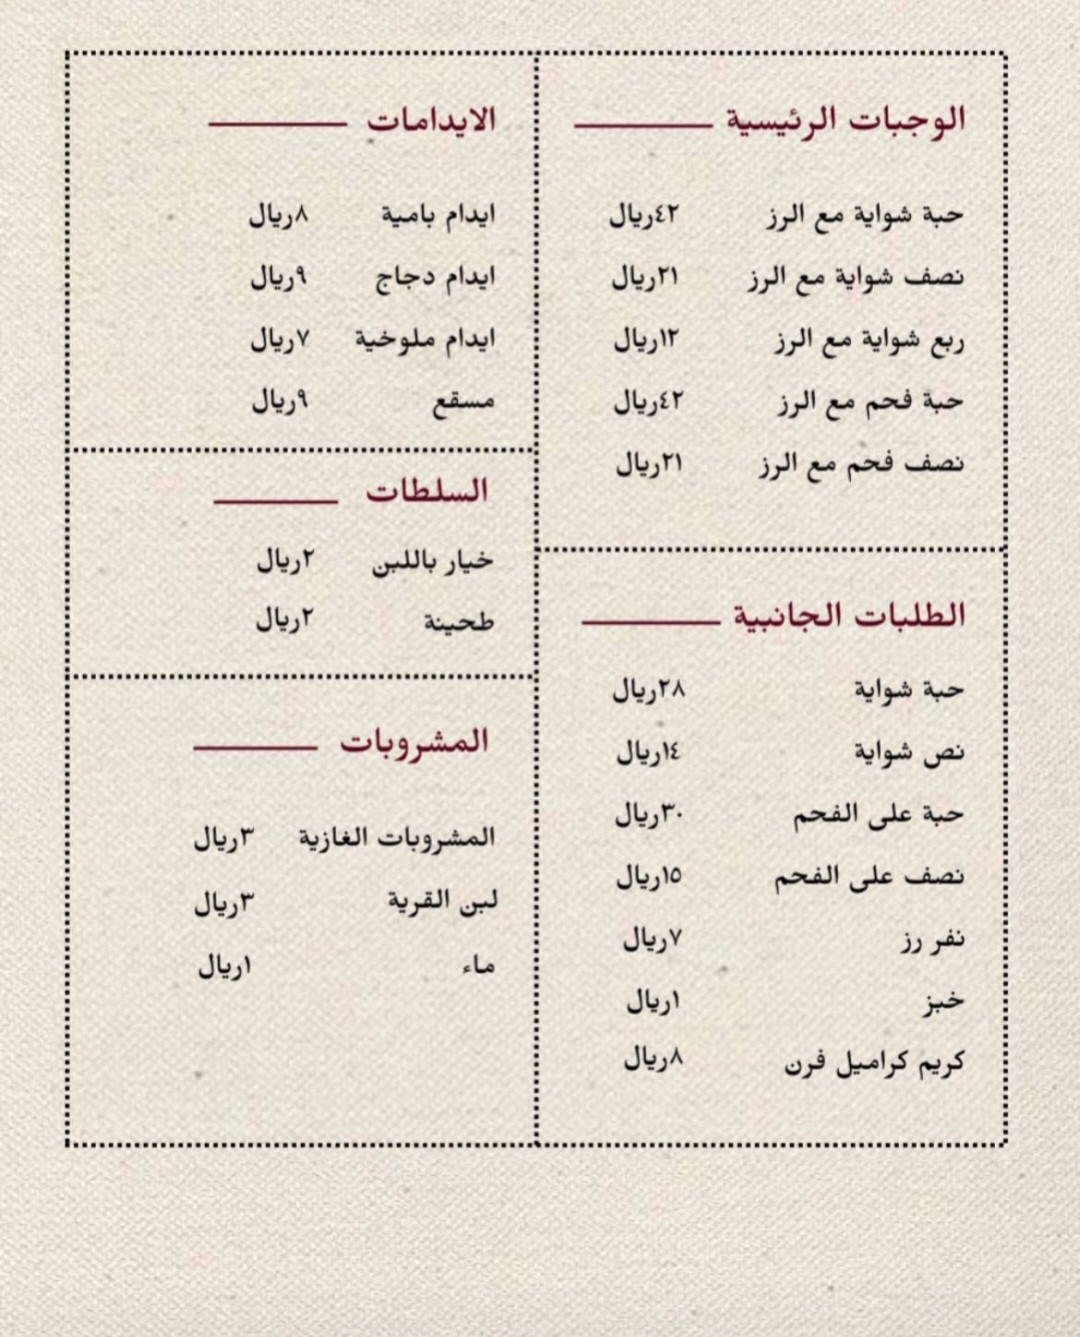 الوجبات الرئيسية
حبة شواية مع الرز ٤٢ريال
نصف شواية مع الرز ٢١ريال
ربع شواية مع الرز ١٢ريال
حبة فحم مع الرز ٤٢ريال
نصف فحم مع الرز ٢١ريال
الطلبات الجانبية
حبة شواية ٢٨ريال
نص شواية ١٤ريال
حبة على الفحم ٣٠ريال
نصف على الفحم ١٥ريال
نفر رز ٧ريال
خبز ١ريال
كريم كراميل فرن ٨ريال
الايدامات
ايدام بامية ٨ريال
ايدام دجاج ٩ريال
ايدام ملوخية ٧ريال
مسقع ٩ريال
السلطات
خيار باللبن ٢ريال
طحينة ٢ريال
المشروبات
المشروبات الغازية ٣ريال
لبن القرية ٣ريال
ماء ١ريال